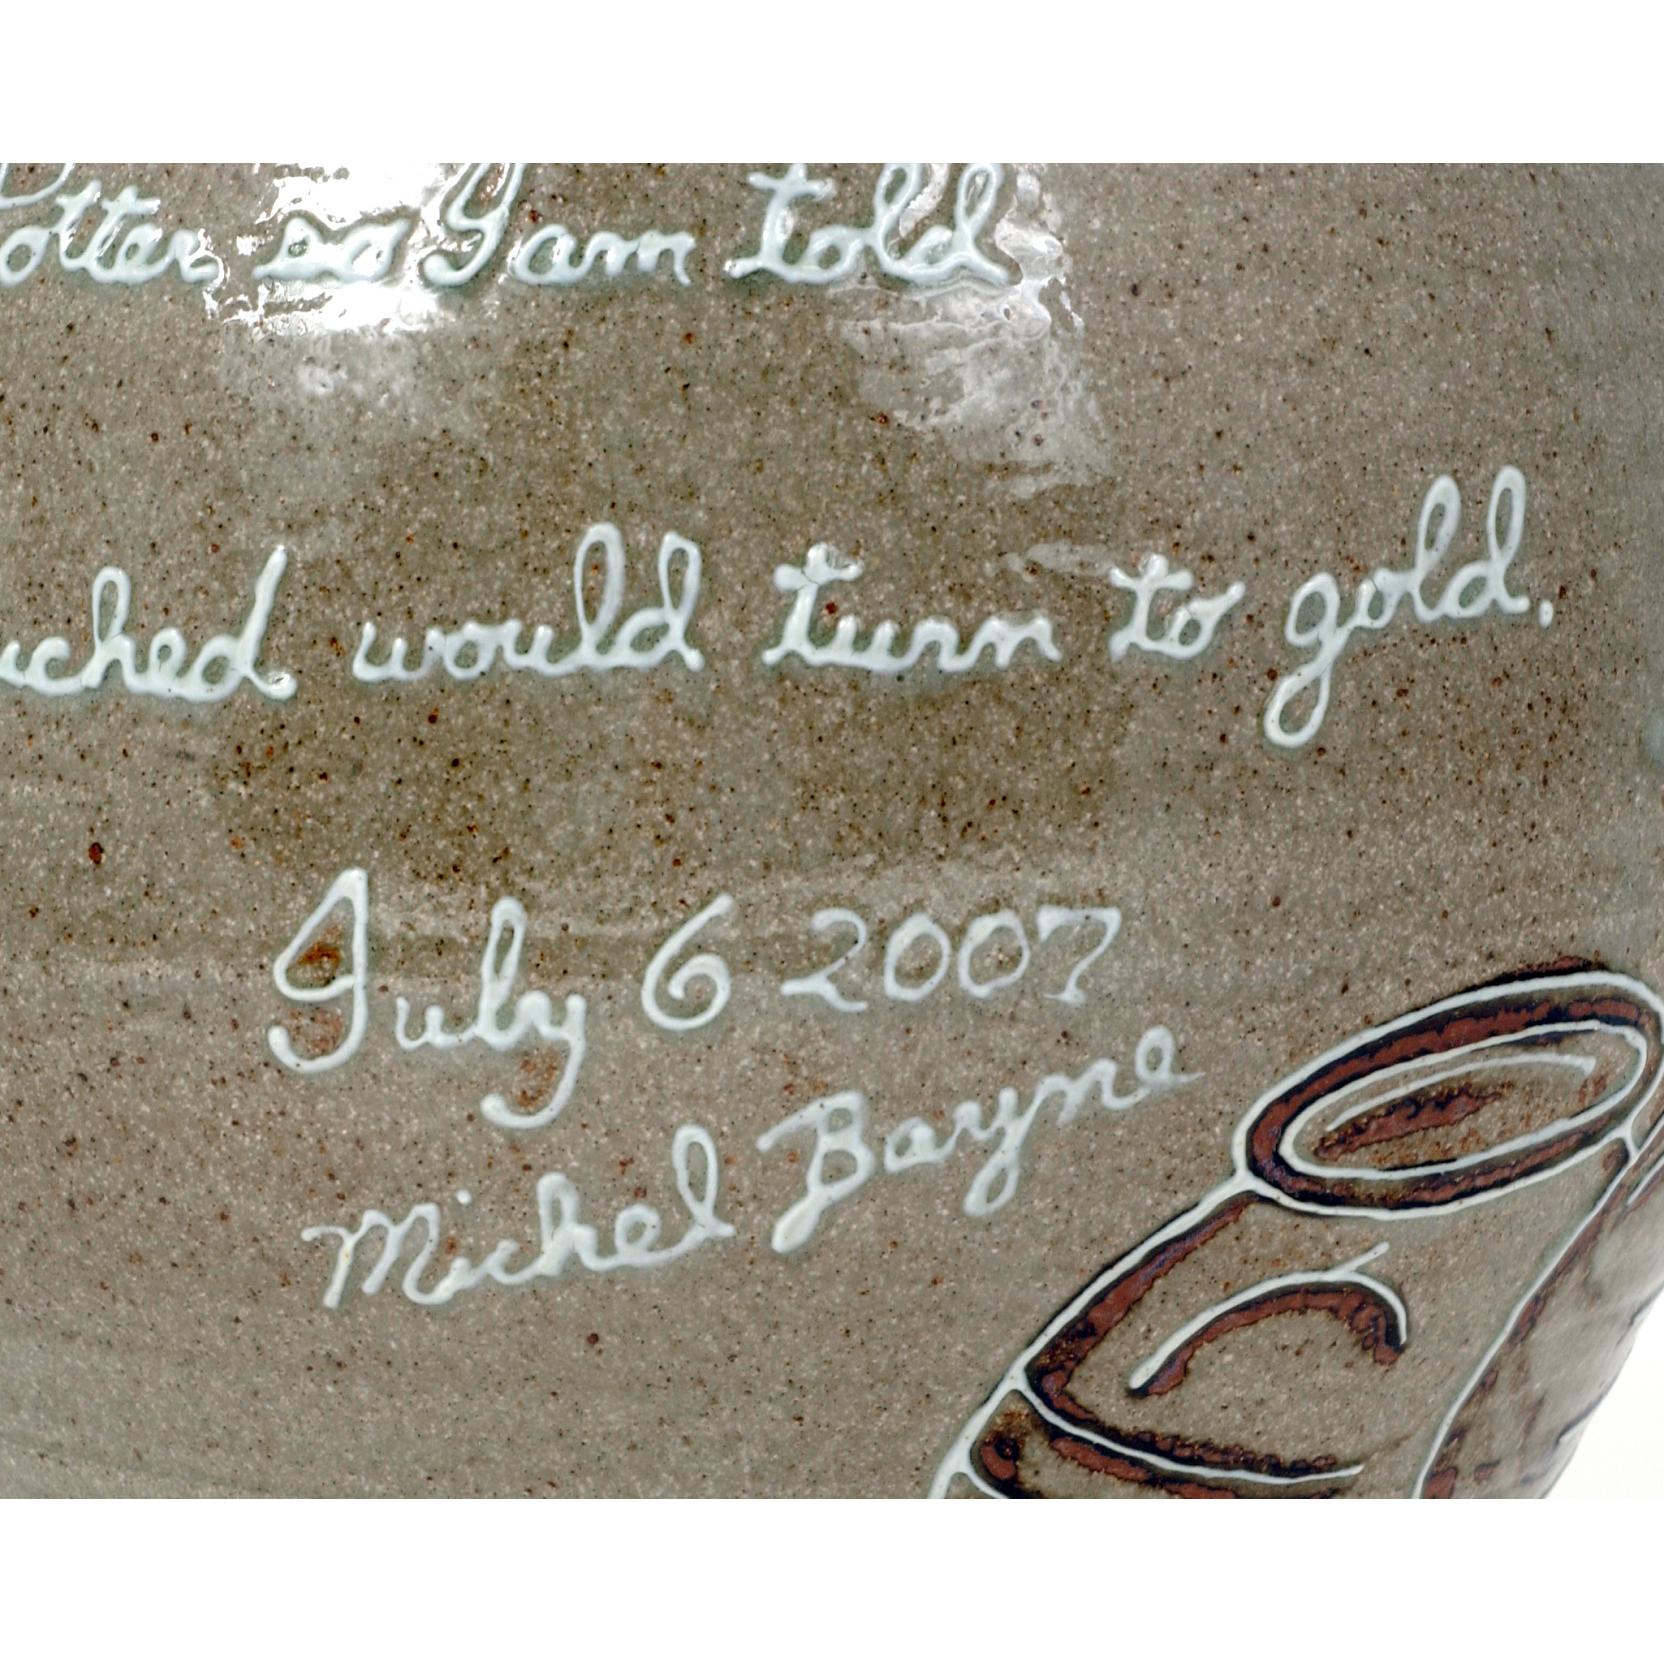 Potter so I am told
uched would turn to gold.
July 6 2007
Michel Bayne